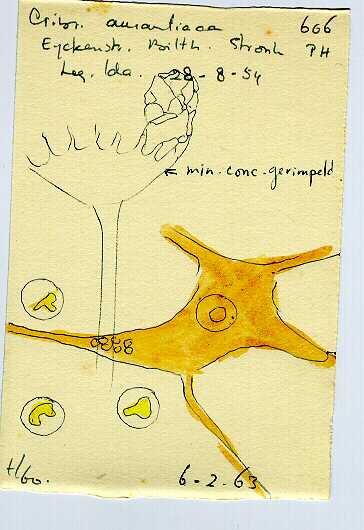 Cribr. aurantiaca 606
Eyckenstr. Bilth. Stronk PH
Leg. Ida. 28-8-54
min. conc. gerimpeld.
H60.
6-2.63